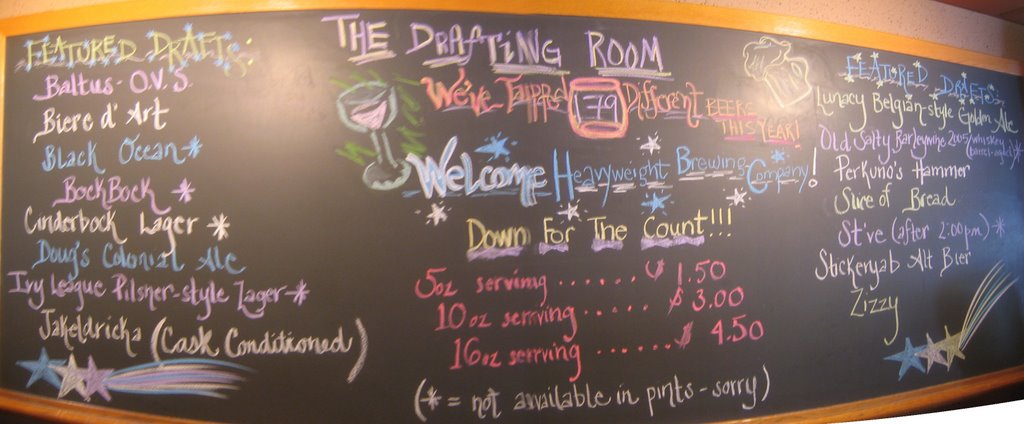 FEATURED DRAFTS:
Baltus - O.V.S
Biere d' Art
Black Ocean *
BockBock *
Cinderbock Lager *
Doug's Colonial Ale
Ivy League Pilsner-style Lager - *
Jakeldricka (Cask Conditioned)
THE DRAFTING ROOM
We've Tapped 179 Different BEERS
THIS YEAR!
Welcome Heavyweight Brewing Company!
Down For The Count!!!
5oz serving ...... $ 1.50
10 oz serving ..... $ 3.00
16oz serving ...... $ 4.50
(* = not available in pints - sorry)
FEATURED DRAFTS:
Lunacy Belgian-style Golden Ale
Old Salty Barleywine 2005/whiskey
(barrel-aged) *
Perkuno's Hammer
Slice of Bread
St've (after 2:00pm) - *
Stickenjab Alt Bier
Zizzy